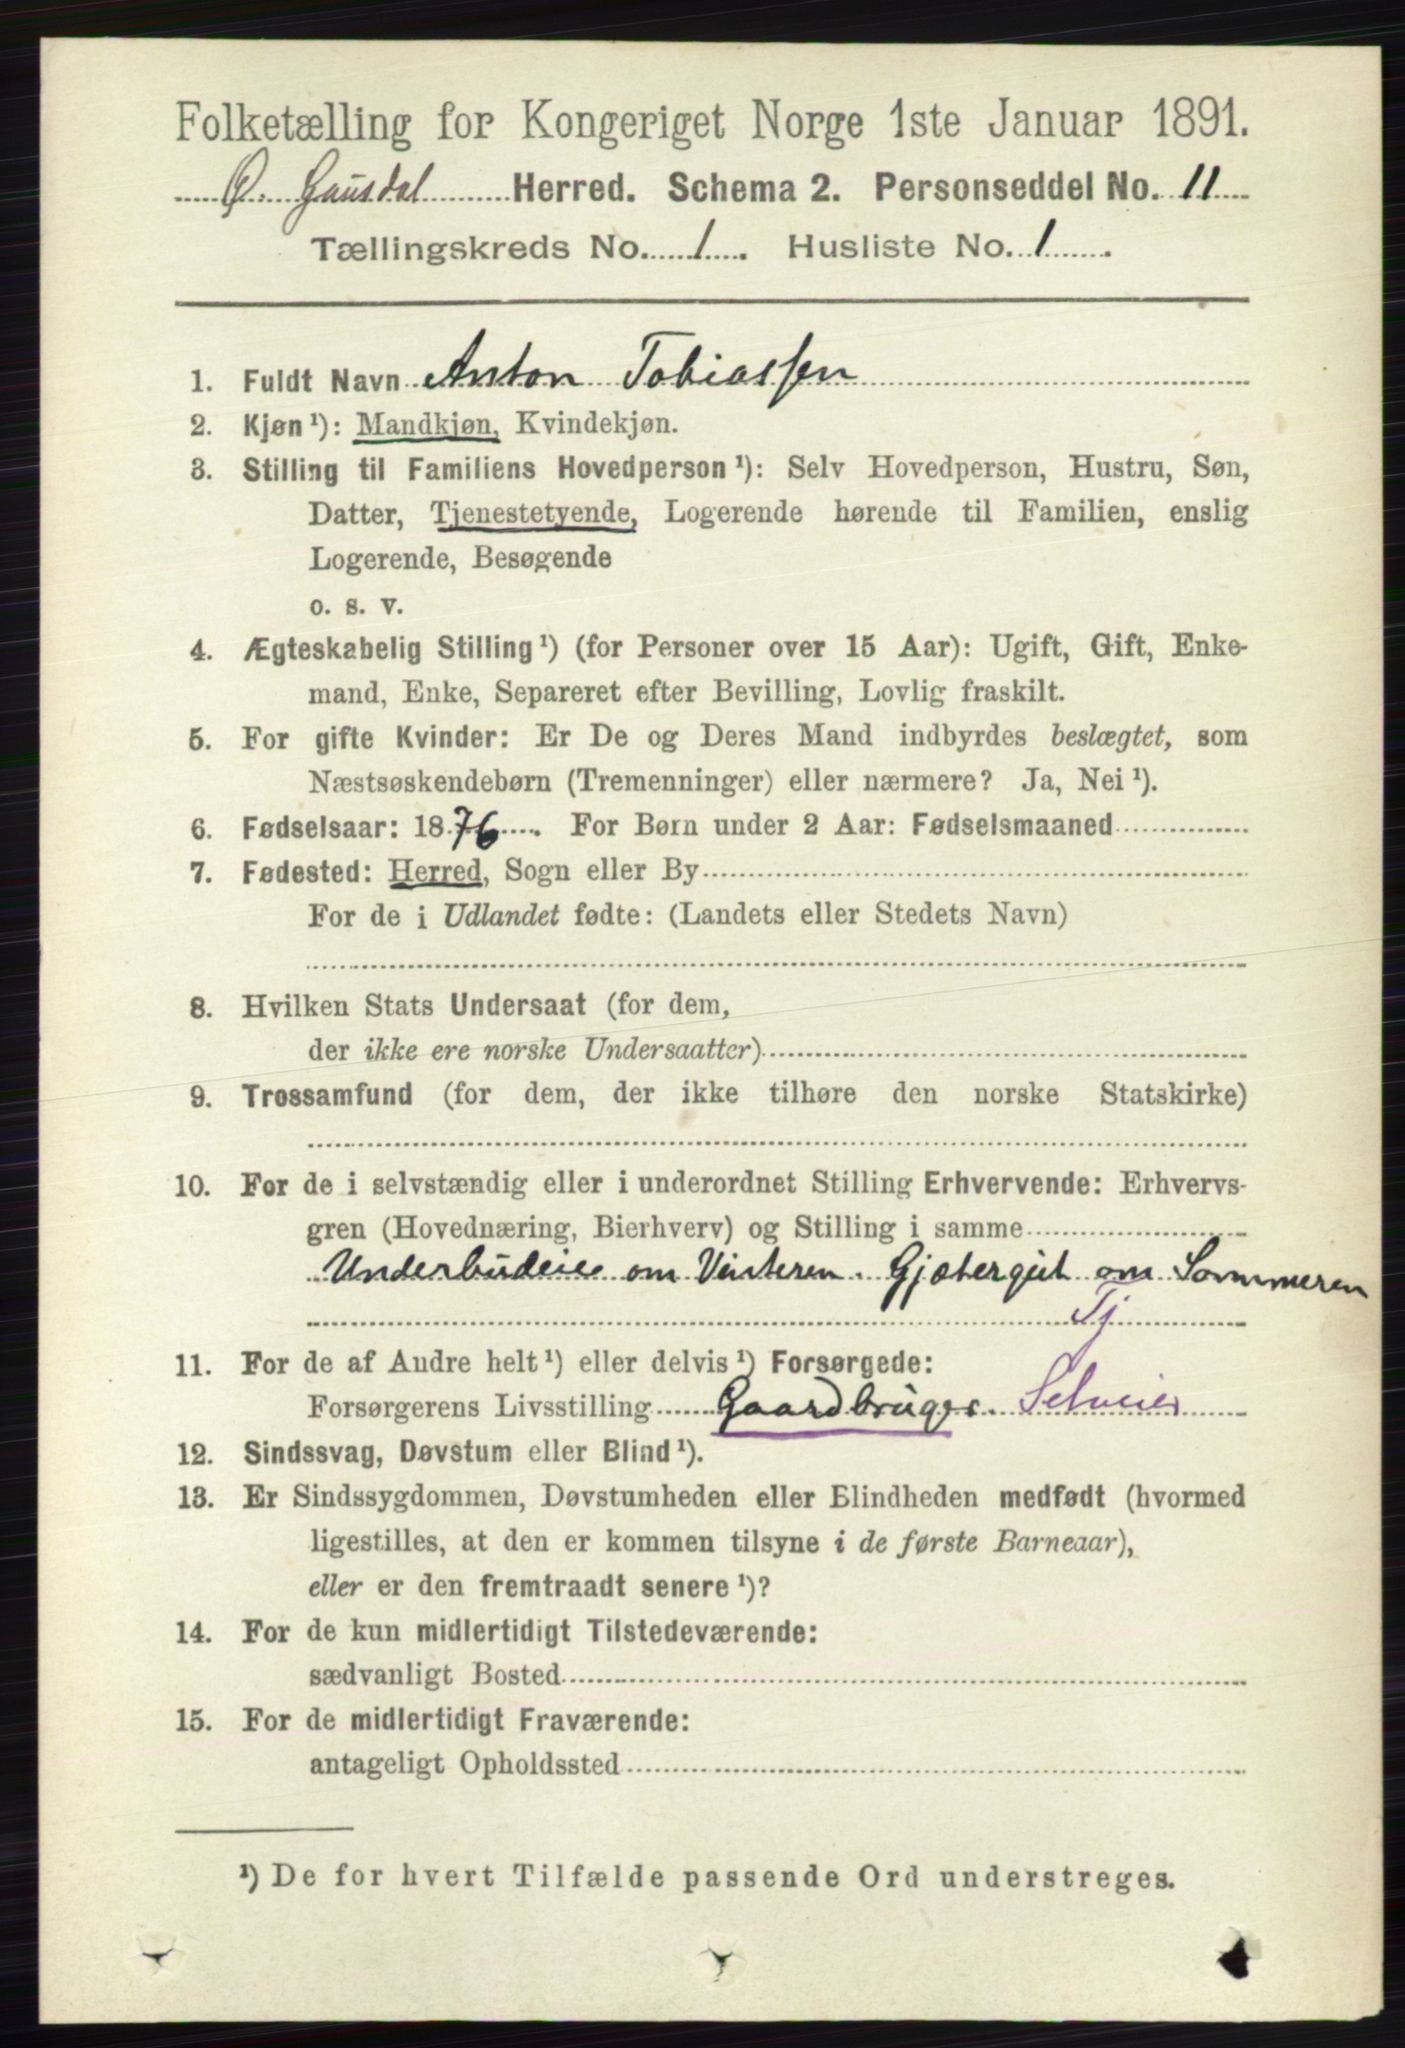 Folketælling for Kongeriget Norge 1ste Januar 1891.
Ø. Gausdal Herred. Schema 2. Personseddel No. 11
Tællingskreds No. 1. Husliste No. 1.
1. Fuldt Navn Anton Tobiassen
2. Kjøn ¹): Mandkjøn, Kvindekjøn.
3. Stilling til Familiens Hovedperson ¹): Selv Hovedperson, Hustru, Søn,
Datter, Tjenestetyende, Logerende hørende til Familien, enslig
Logerende, Besøgende
o. s. v.
4. Ægteskabelig Stilling ¹) (for Personer over 15 Aar): Ugift, Gift, Enke-
mand, Enke, Separeret efter Bevilling, Lovlig fraskilt.
5. For gifte Kvinder: Er De og Deres Mand indbyrdes beslægtet, som
Næstsøskendebørn (Tremenninger) eller nærmere? Ja, Nei ¹).
6. Fødselsaar: 1876. For Børn under 2 Aar: Fødselsmaaned
7. Fødested: Herred, Sogn eller By
For de i Udlandet fødte: (Landets eller Stedets Navn)
8. Hvilken Stats Undersaat (for dem,
der ikke ere norske Undersaatter)
9. Trossamfund (for dem, der ikke tilhøre den norske Statskirke)
10. For de i selvstændig eller i underordnet Stilling Erhvervende: Erhvervs-
gren (Hovednæring, Bierhverv) og Stilling i samme
Underbudeie om Vinteren. Gjætergut om Sommeren
Tj
11. For de af Andre helt ¹) eller delvis ¹) Forsørgede:
Forsørgerens Livsstilling Gaardbruger. Selveier
12. Sindssvag, Døvstum eller Blind ¹).
13. Er Sindssygdommen, Døvstumheden eller Blindheden medfødt (hvormed
ligestilles, at den er kommen tilsyne i de første Barneaar),
eller er den fremtraadt senere ¹)?
14. For de kun midlertidigt Tilstedeværende:
sædvanligt Bosted
15. For de midlertidigt Fraværende:
antageligt Opholdssted
¹) De for hvert Tilfælde passende Ord understreges.